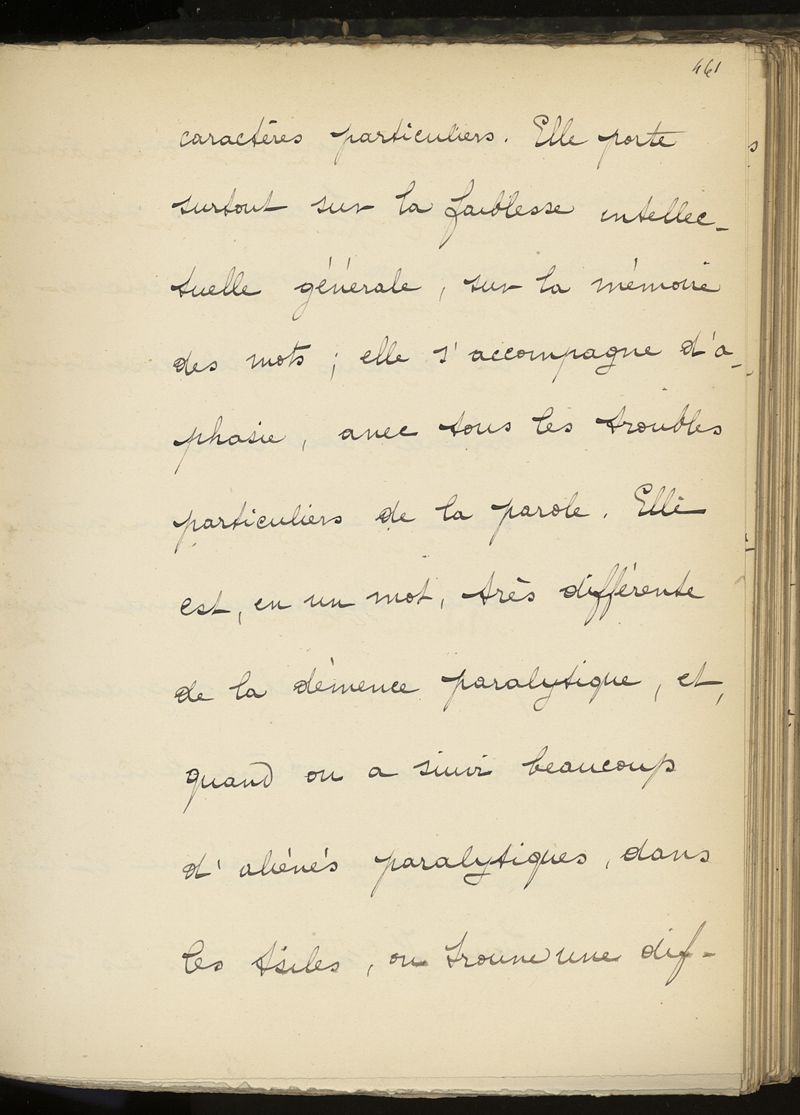 461
caractères particuliers. Elle porte
surtout sur la faiblesse intellec-
tuelle générale, sur la mémoire
des mots ; elle s'accompagne d'a-
phasie, avec tous les troubles
particuliers de la parole. Elle
est, en un mot, très différente
de la démence paralytique, et,
quand on a suivi beaucoup
d'aliénés paralytiques, dans
les Asiles, on trouve une dif-